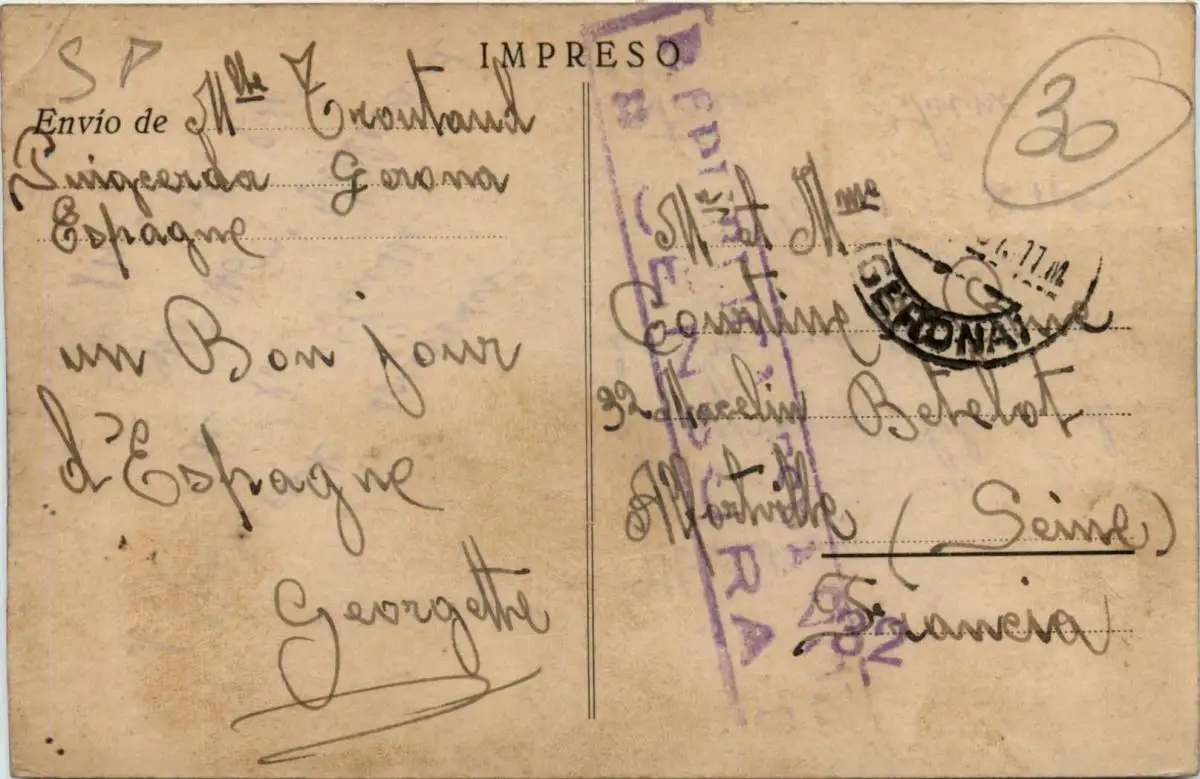 SP
IMPRESO
30
Envío de Mlle Troutaud
Puigcerda Gerona
Espagne
un Bon jour
d'Espagne
Georgette
Mr et Mme
Courtine
32 Marcelin Betelot
Alfortville (Seine)
Francia
GERONA
CENSURA